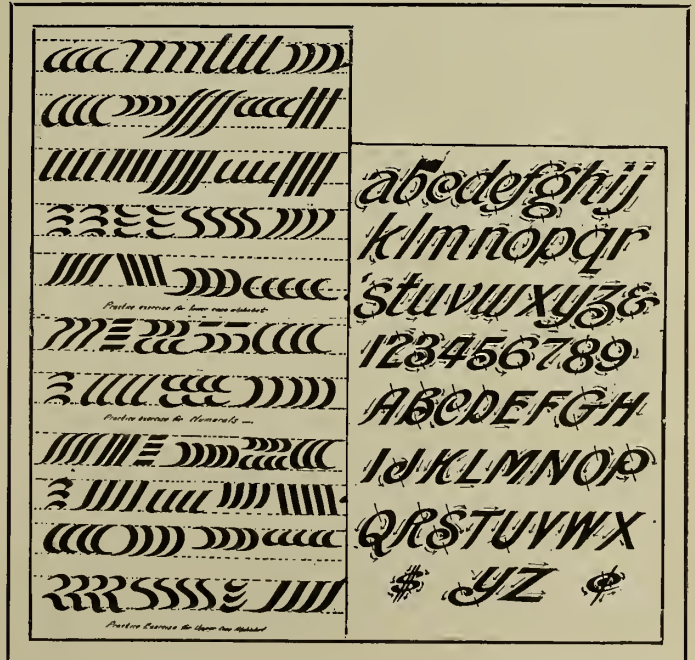 Practice exercise for lower case alphabet
Practice exercise for Numerals
Practice Exercise for Upper Case Alphabet
abcdefghij
klmnopqr
stuvwxyz&
123456789
ABCDEFGH
IJKLMNOP
QRSTUVWX
$ YZ ¢